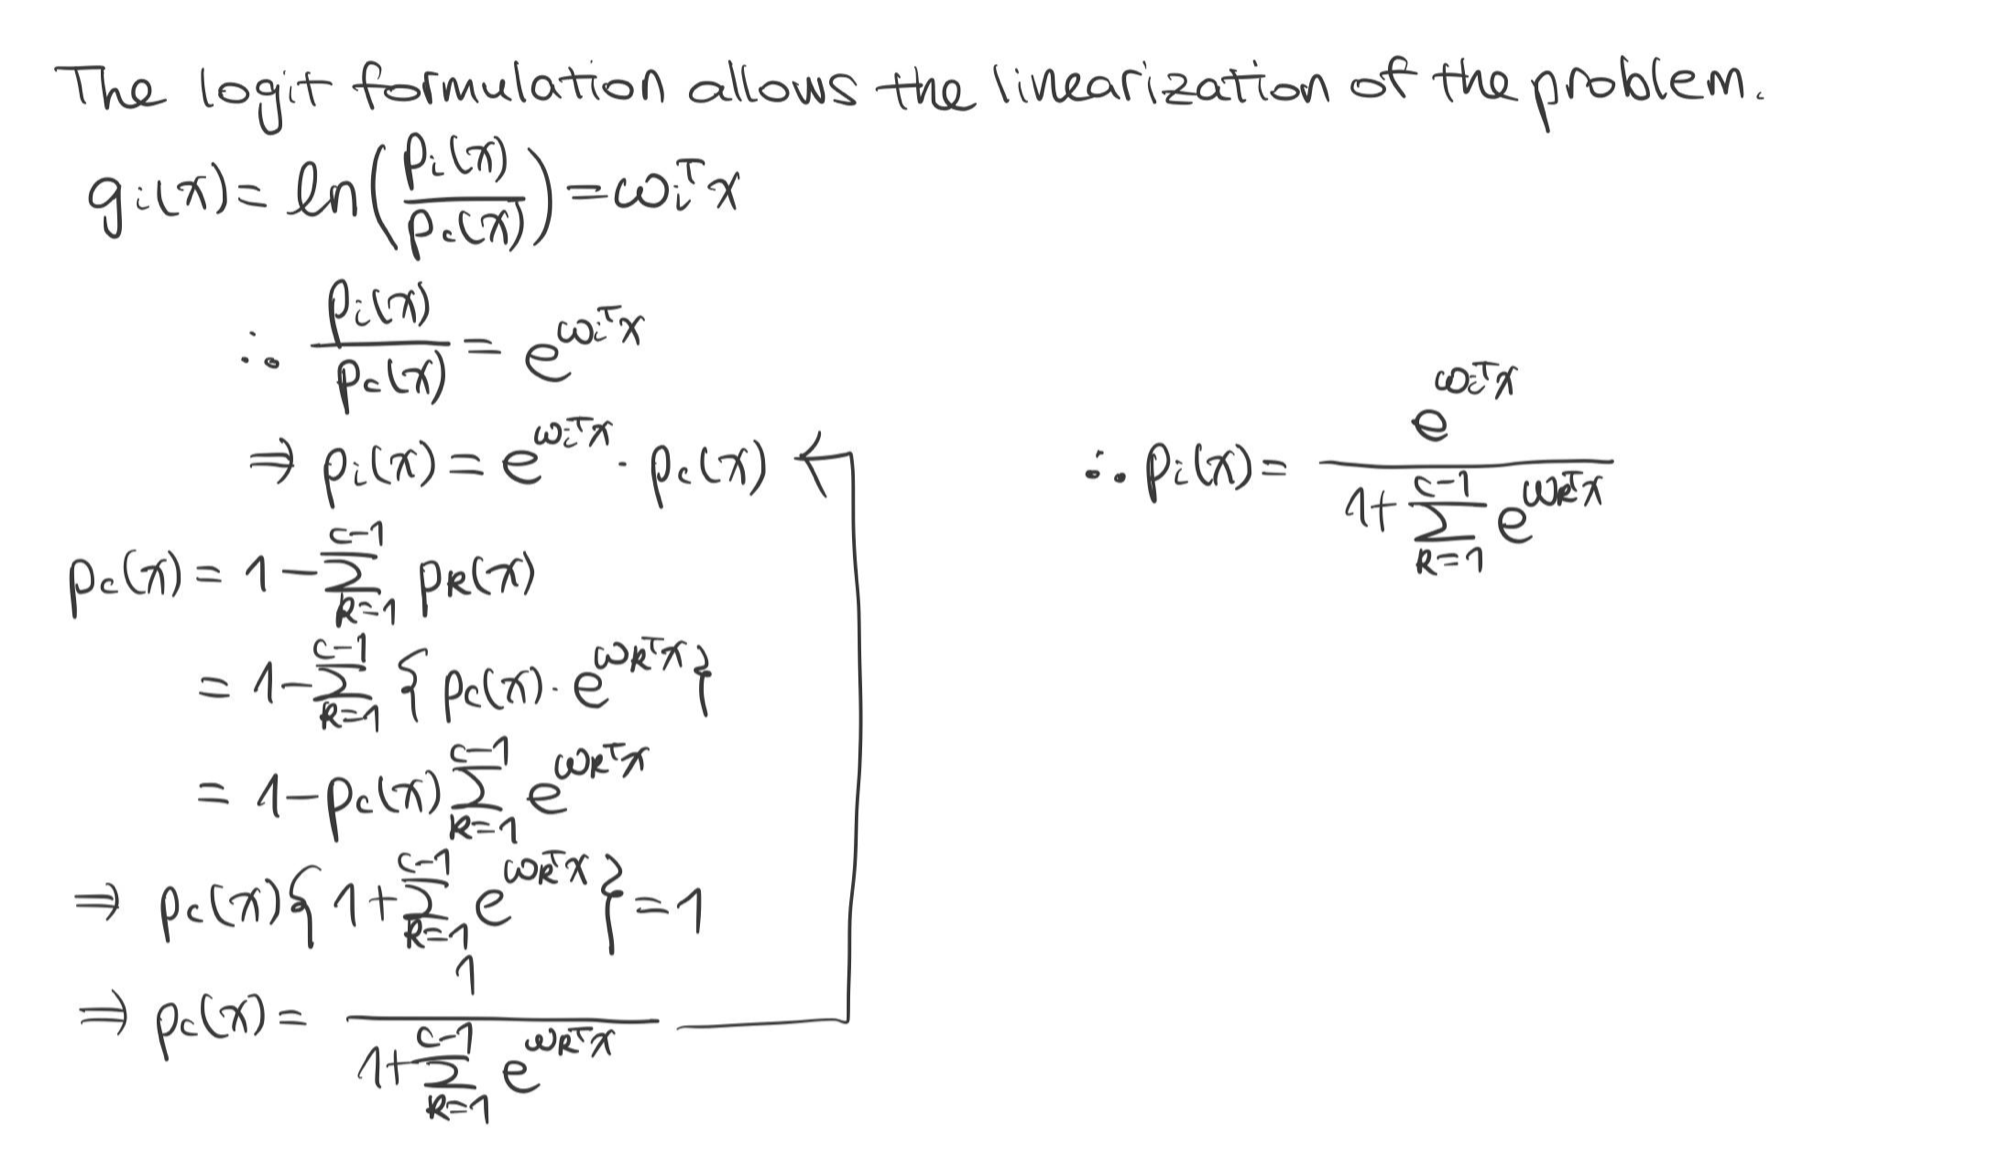 The logit formulation allows the linearization of the problem.
gᵢ(x) = ln(pᵢ(x)/p_c(x)) = ωᵢᵀx
∴ pᵢ(x)/p_c(x) = e^{ωᵢᵀx}
⇒ pᵢ(x) = e^{ωᵢᵀx} · p_c(x) ←
p_c(x) = 1 − ∑_{k=1}^{c−1} p_k(x)
= 1 − ∑_{k=1}^{c−1} { p_c(x) · e^{ω_kᵀx} }
= 1 − p_c(x) ∑_{k=1}^{c−1} e^{ω_kᵀx}
⇒ p_c(x) { 1 + ∑_{k=1}^{c−1} e^{ω_kᵀx} } = 1
⇒ p_c(x) = 1/(1 + ∑_{k=1}^{c−1} e^{ω_kᵀx})
∴ pᵢ(x) = e^{ωᵢᵀx}/(1 + ∑_{k=1}^{c−1} e^{ω_kᵀx})